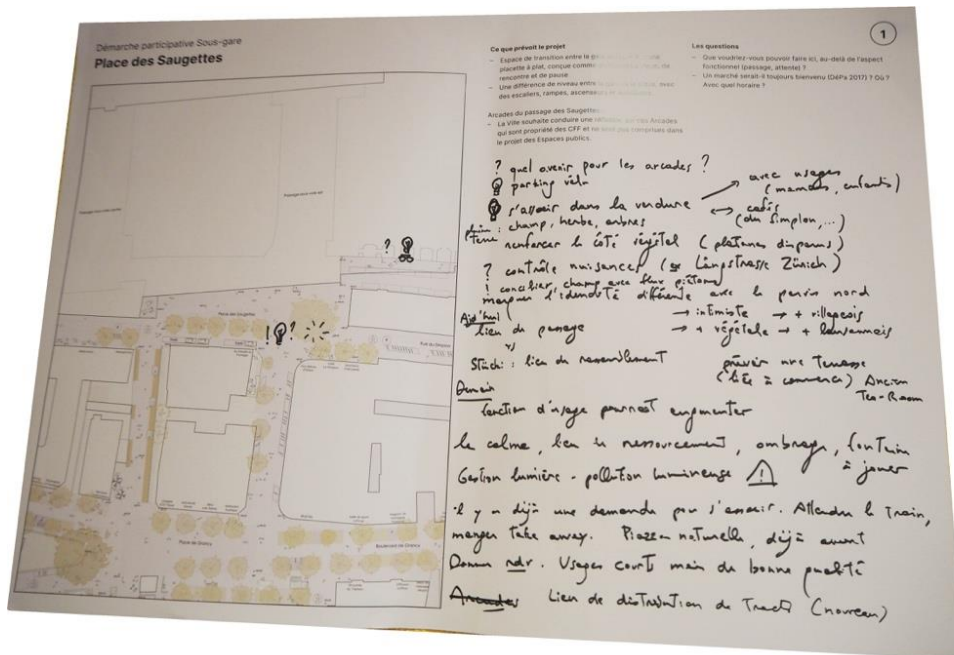 Démarche participative Sous-gare
Place des Saugettes
1
Ce que prévoit le projet
- Espace de transition entre le
placette à plat, conçue comme de
rencontre et de pause
- Une différence de niveau entre avec
des escaliers, rampes, ascenseurs
Arcades du passage des Saugettes
- La Ville souhaite conduire une Arcades
qui sont propriété des CFF et comprises dans
le projet des Espaces publics.
Les questions
- Que voudriez-vous pouvoir faire ici, au-delà de l'aspect
fonctionnel (passage, attente) ?
- Un marché serait-il toujours bienvenu (DéPa 2017) ? Où ?
Avec quel horaire ?
Place des Saugettes
Rue du Simplon
Place de Grancy
Boulevard de Grancy
? !
! ?
? quel avenir pour les arcades ?
parking vélo
s'asseoir dans la verdure
avec usages
(mamans, enfants)
cafés
(du Simplon, ...)
pleine terre : champ, herbe, arbres
renforcer le côté végétal (platanes disparus)
? contrôle nuisances ( Langstrasse Zürich)
! concilier champ avec flux piétons
marquer l'identité différente avec le parvis nord
→ intimiste → + villageois
→ + végétale → + lausannois
Ajd'hui
lieu de passage
vs
Stücki : lieu de rassemblement
prévoir une terrasse
(liée à commerce) Ancien
Tea-Room
Demain
fonction d'usage pourrait augmenter
le calme, lieu de ressourcement, ombrage, fontaine
à jouer
Gestion lumière - pollution lumineuse
il y a déjà une demande pour s'asseoir. Attendre le train,
manger take away. Piazza naturelle, déjà avant
Donner rdv. Usages courts mais de bonne qualité
Arcades Lieu de distribution de Tracts (nouveau)